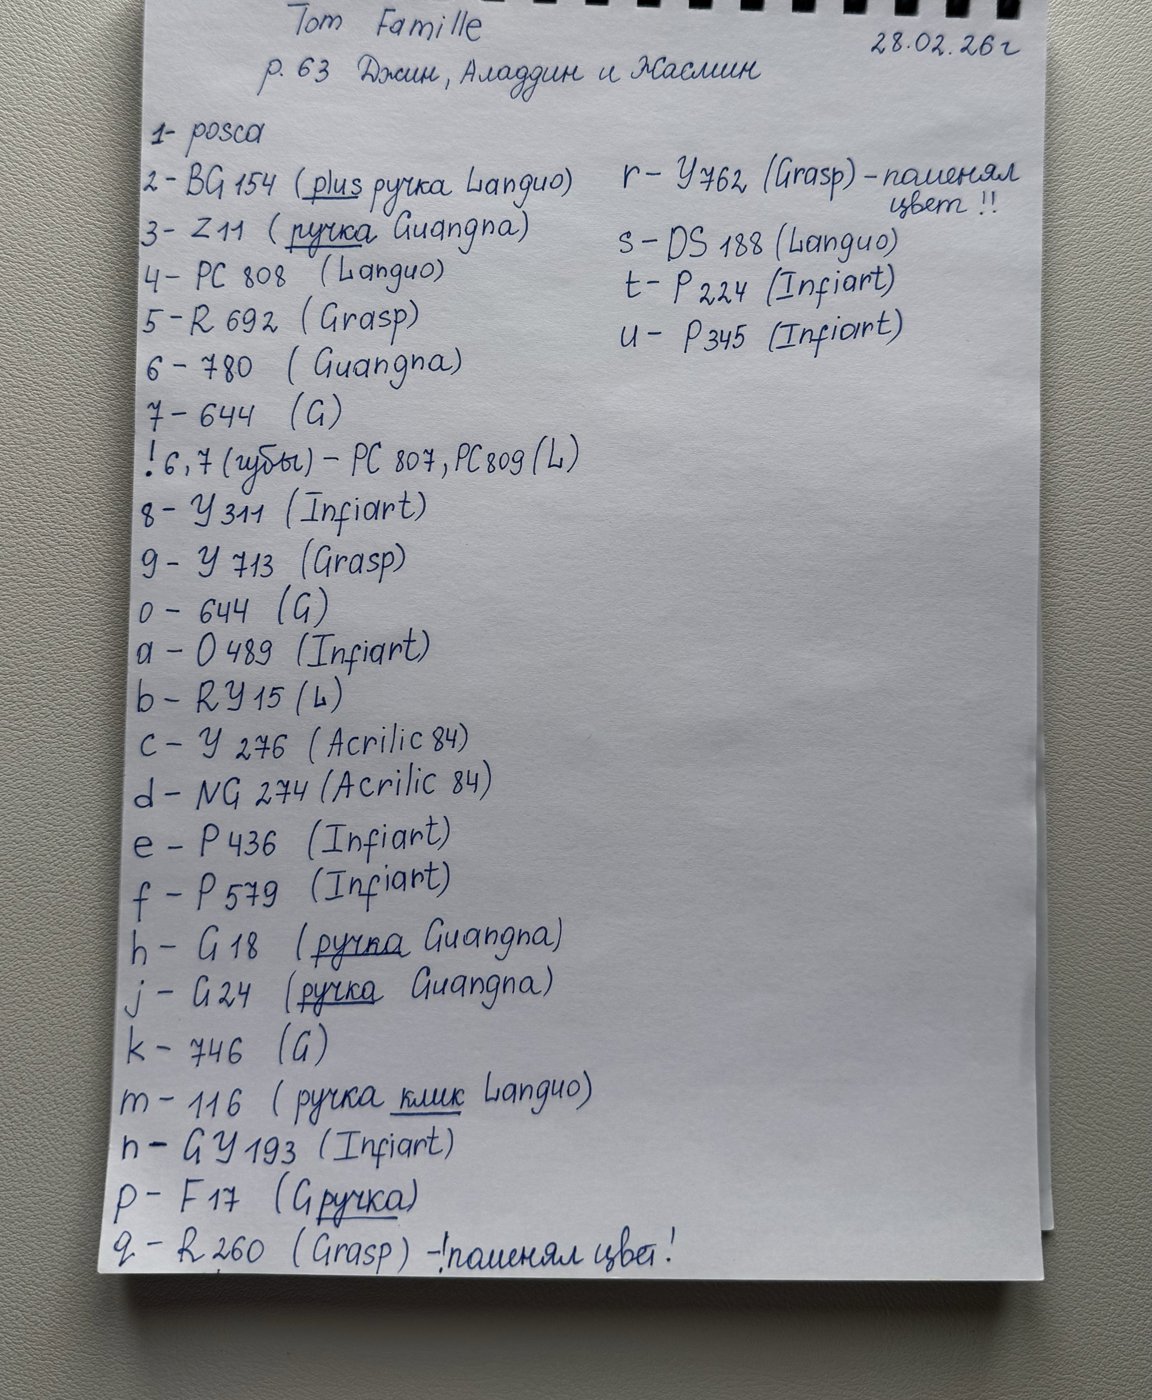 Tom Famille
28.02.26г
p. 63 Джин, Аладдин и Жасмин
1- posca
2 - BG 154 (plus ручка Languo)
3 - Z11 (ручка Guangna)
4 - PC 808 (Languo)
5 - R 692 (Grasp)
6 - 780 (Guangna)
7 - 644 (G)
! 6,7 (губы) - PC 807, PC 809 (L)
8 - Y 311 (Infiart)
9 - Y 713 (Grasp)
0 - 644 (G)
a - O 489 (Infiart)
b - RY15 (L)
c - Y 276 (Acrilic 84)
d - NG 274 (Acrilic 84)
e - P 436 (Infiart)
f - P 579 (Infiart)
h - G 18 (ручка Guangna)
j - G24 (ручка Guangna)
k - 746 (G)
m - 116 (ручка клик Languo)
n - GY 193 (Infiart)
p - F 17 (G ручка)
q - R 260 (Grasp) -!поменял цвет!
r - Y762 (Grasp) - поменял
цвет !!
s - DS 188 (Languo)
t - P 224 (Infiart)
u - P345 (Infiart)